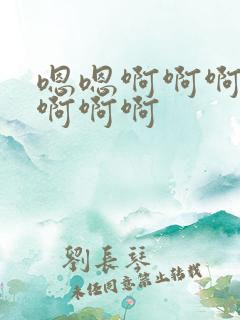 嗯嗯啊啊啊
啊啊啊
劉長琴
未经同意禁止转载